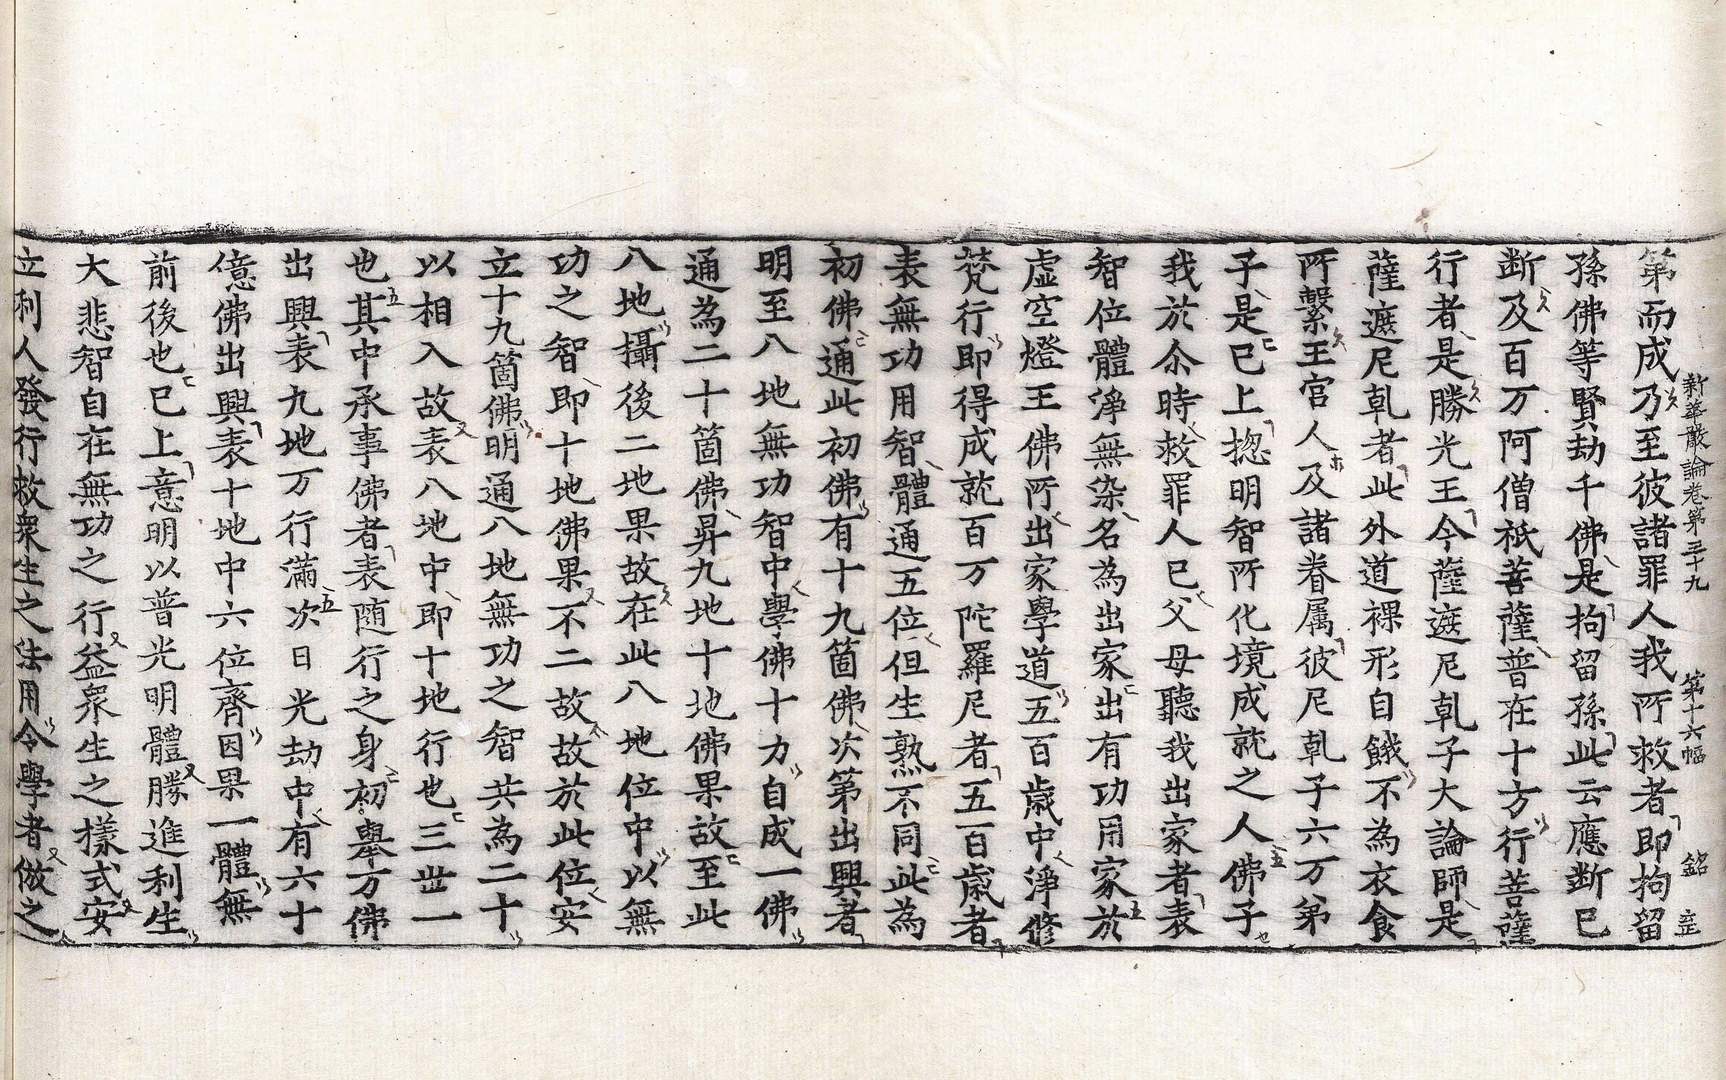 新華嚴論卷第三十九　第十六幅　銘　立
第而成乃至彼諸罪人我所救者即拘留
孫佛等賢劫千佛是拘留孫此云應断已
断及百万阿僧祇菩薩普在十方行菩薩
行者是勝光王今薩遮尼乹子大論師是
薩遮尼乹者此外道裸形自餓不為衣食
所繫王宮人及諸眷属彼尼乹子六万弟
子是已上揔明智所化境成就之人佛子
我於尒時救罪人已父母聽我出家者表
智位體淨無染名為出家出有功用家於
虛空燈王佛所出家學道五百歲中淨修
梵行即得成就百万陀羅尼者五百歲者
表無功用智體通五位但生熟不同此為
初佛通此初佛有十九箇佛次第出興者
明至八地無功智中學佛十力自成一佛
通為二十箇佛昇九地十地佛果故至此
八地攝後二地果故在此八地位中以無
功之智即十地佛果不二故故於此位安
立十九箇佛明通八地無功之智共為二十
以相入故表八地中即十地行也三世一
也其中承事佛者表随行之身初舉万佛
出興表九地万行滿次日光劫中有六十
億佛出興表十地中六位齊因果一體無
前後也已上意明以普光明體勝進利生
大悲智自在無功之行益衆生之樣式安
立利人發行救衆生之法用令學者倣之